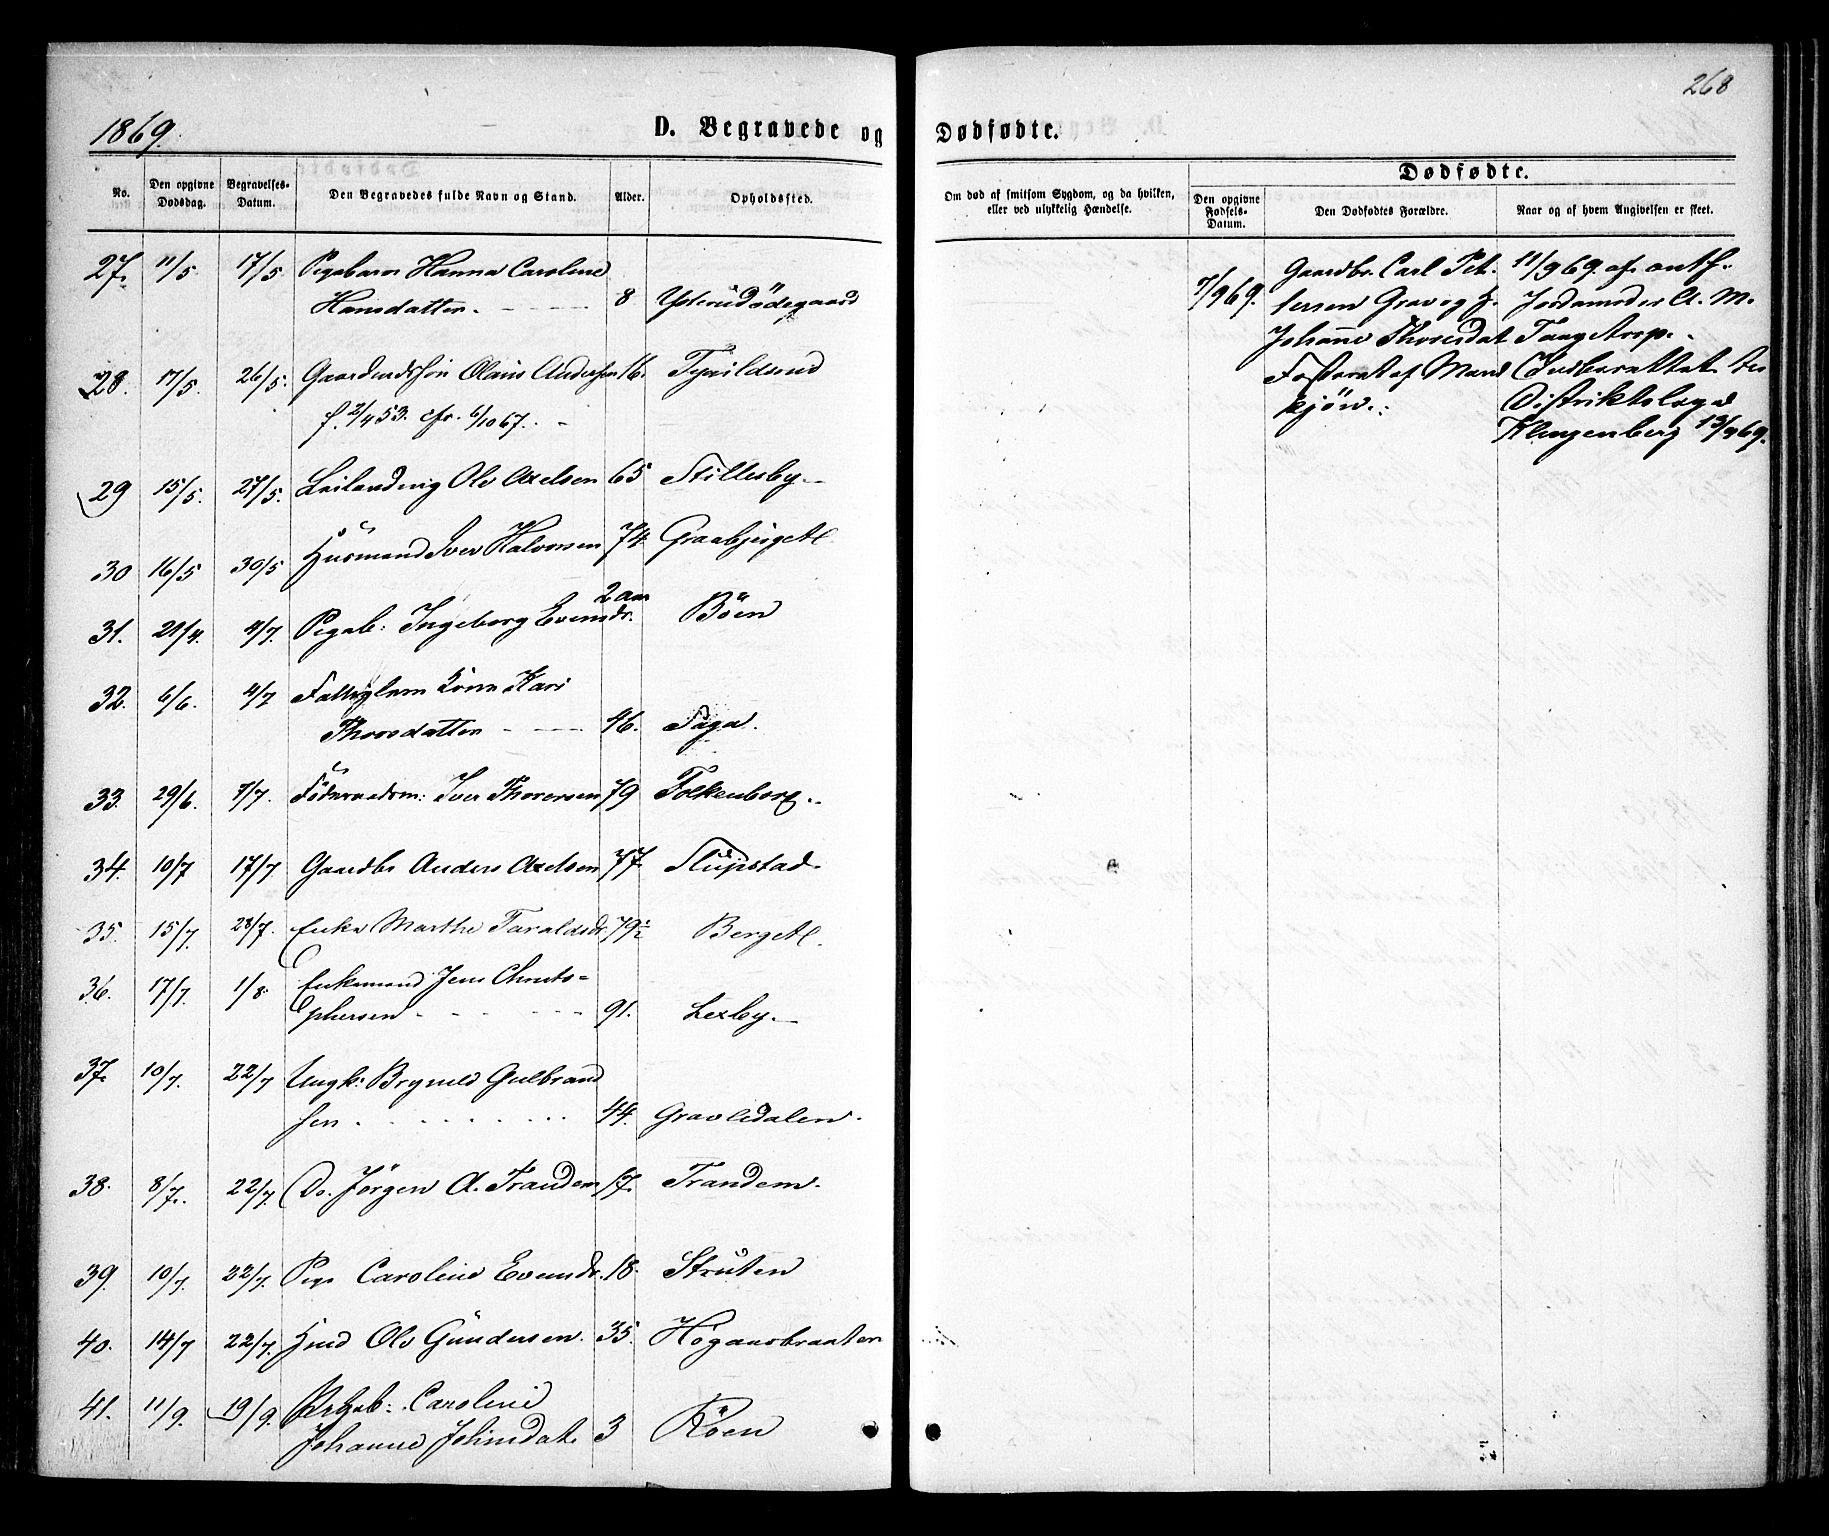 268
1869.
D. Begravede og Dødfødte.
No.
Den opgivne Dødsdag.
Begravelses-Datum.
Den Begravedes fulde Navn og Stand.
Alder.
Opholdssted.
Om død af smitsom Sygdom, og da hvilken, eller ved ulykkelig Hændelse.
Dødfødte.
Den opgivne Fødsels-Datum.
Den Dødfødtes Forældre.
Naar og af hvem Angivelsen er skeet.
27. 11/5. 17/5 Pigebarn Hanna Caroline
Hansdatter. 8 Ysterudödegaard
28. 17/5. 26/5. Olaus Andersen 16.
f. 2/4 53. cfr. 6/10 67.
29 15/5. 27/5. Ole Axelsen 65 Stillesby
30 16/5 30/5 Husmand Iver Halvorsen 74.
31. 21/4. 4/7. Pigeb: Ingeborg Evensdr. 2 aar Böen
32. 6/6. 4/7 Kari
Thorsdatter 46. Saga.
33. 29/6. 7/7. Föderaadsm: Iver Thoresen 79 Folkenborg.
34. 10/7 17/7 Gaardbr Anders Axelsen 77. Slupstad
35. 15/7. 28/7. Enke Marthe Taraldsdr. 79½ Berget
36. 17/7. 1/8. Enkemand Jens Christo-
phersen 91. Lexby.
37. 10/7. 22/7 Ungk: Brynild Gulbrand
sen 44. Gravledalen.
38. 8/7. 22/7. Do. Jörgen A. Trandem 17. Trandem.
39. 10/7. 22/7. Pige Caroline Evensdr. 18. Struten
40. 14/7 22/7. Ole Gundersen. 35. Högaasbraaten
41. 11/9. 19/9. Pigeb: Caroline
Johanne Johnsdat. 3 Röen
7/9 69. Gaardbr. Carl Pet. 11/9 69. af
tersen Grav og H. Jordemoder A. M.
Johanne Thoresdat Taugstorp.
Fosteret af Mand Indberettet til
kjön. Distriktslæge
Klingenberg 13/9 69.